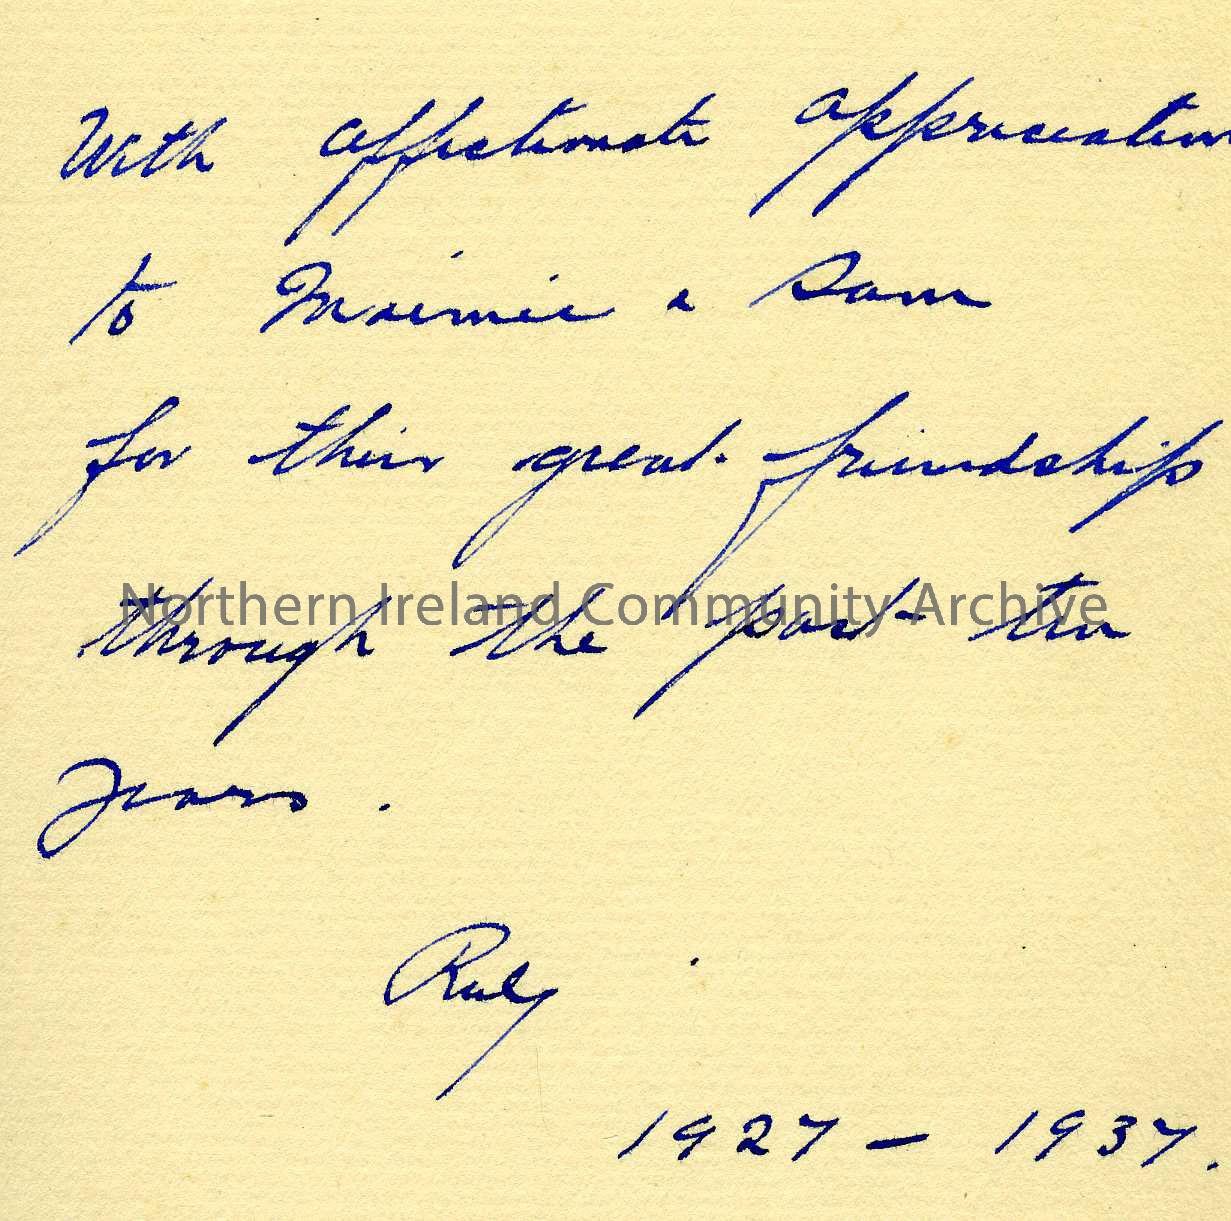 With affectionate appreciation
to Maimie & Sam
for their great friendship
Northern Ireland Community Archive
through the past ten
Years.
Ruby
1927 – 1937.